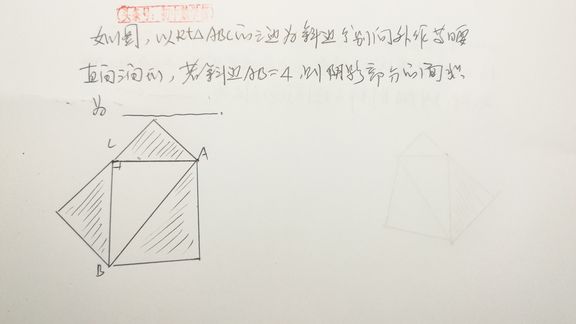 如图，以Rt△ABC的三边为斜边分别向外作等腰
直角三角形，若斜边AB=4，则阴影部分的面积
为________.
C
A
B